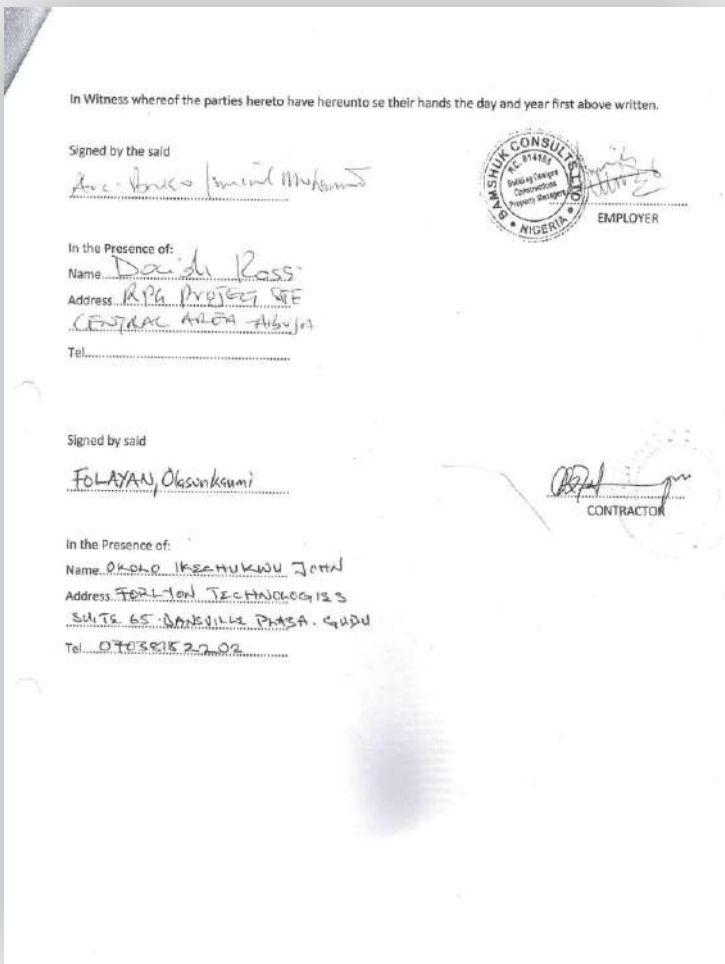 In Witness whereof the parties hereto have hereunto se their hands the day and year first above written.
Signed by the said
Arc. Ismail Muhammed
BAMSHUK CONSULTS LTD
R.C. 814185
Building Designs
Constructions
Property Managers
NIGERIA
EMPLOYER
In the Presence of:
Name Ross
Address RPG PROJECT SITE
CENTRAL AREA Abuja
Tel
Signed by said
FOLAYAN, Olasunkanmi
CONTRACTOR
In the Presence of:
Name OKOLO IKECHUKWU JOHN
Address TECHNOLOGIES
SUITE 65 DANSVILLE PLAZA. GUDU
Tel